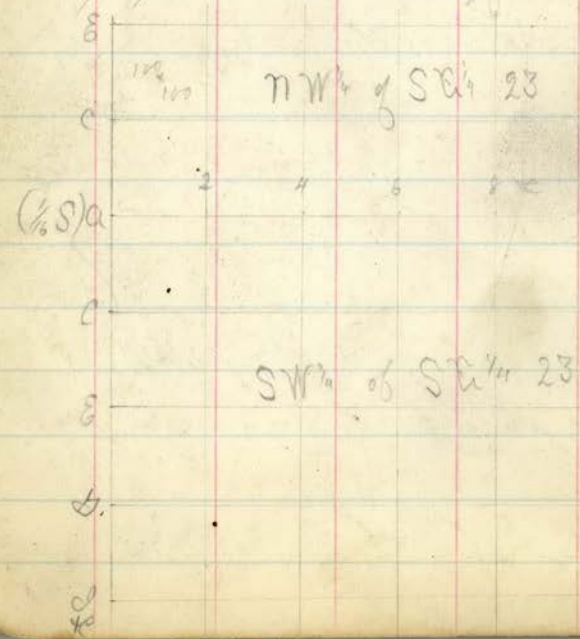 E
100 100 NW 1/4 of SE 1/4 23
C
2 4 6 8
(1/16 S) a
C
SW 1/4 of SE 1/4 23
E